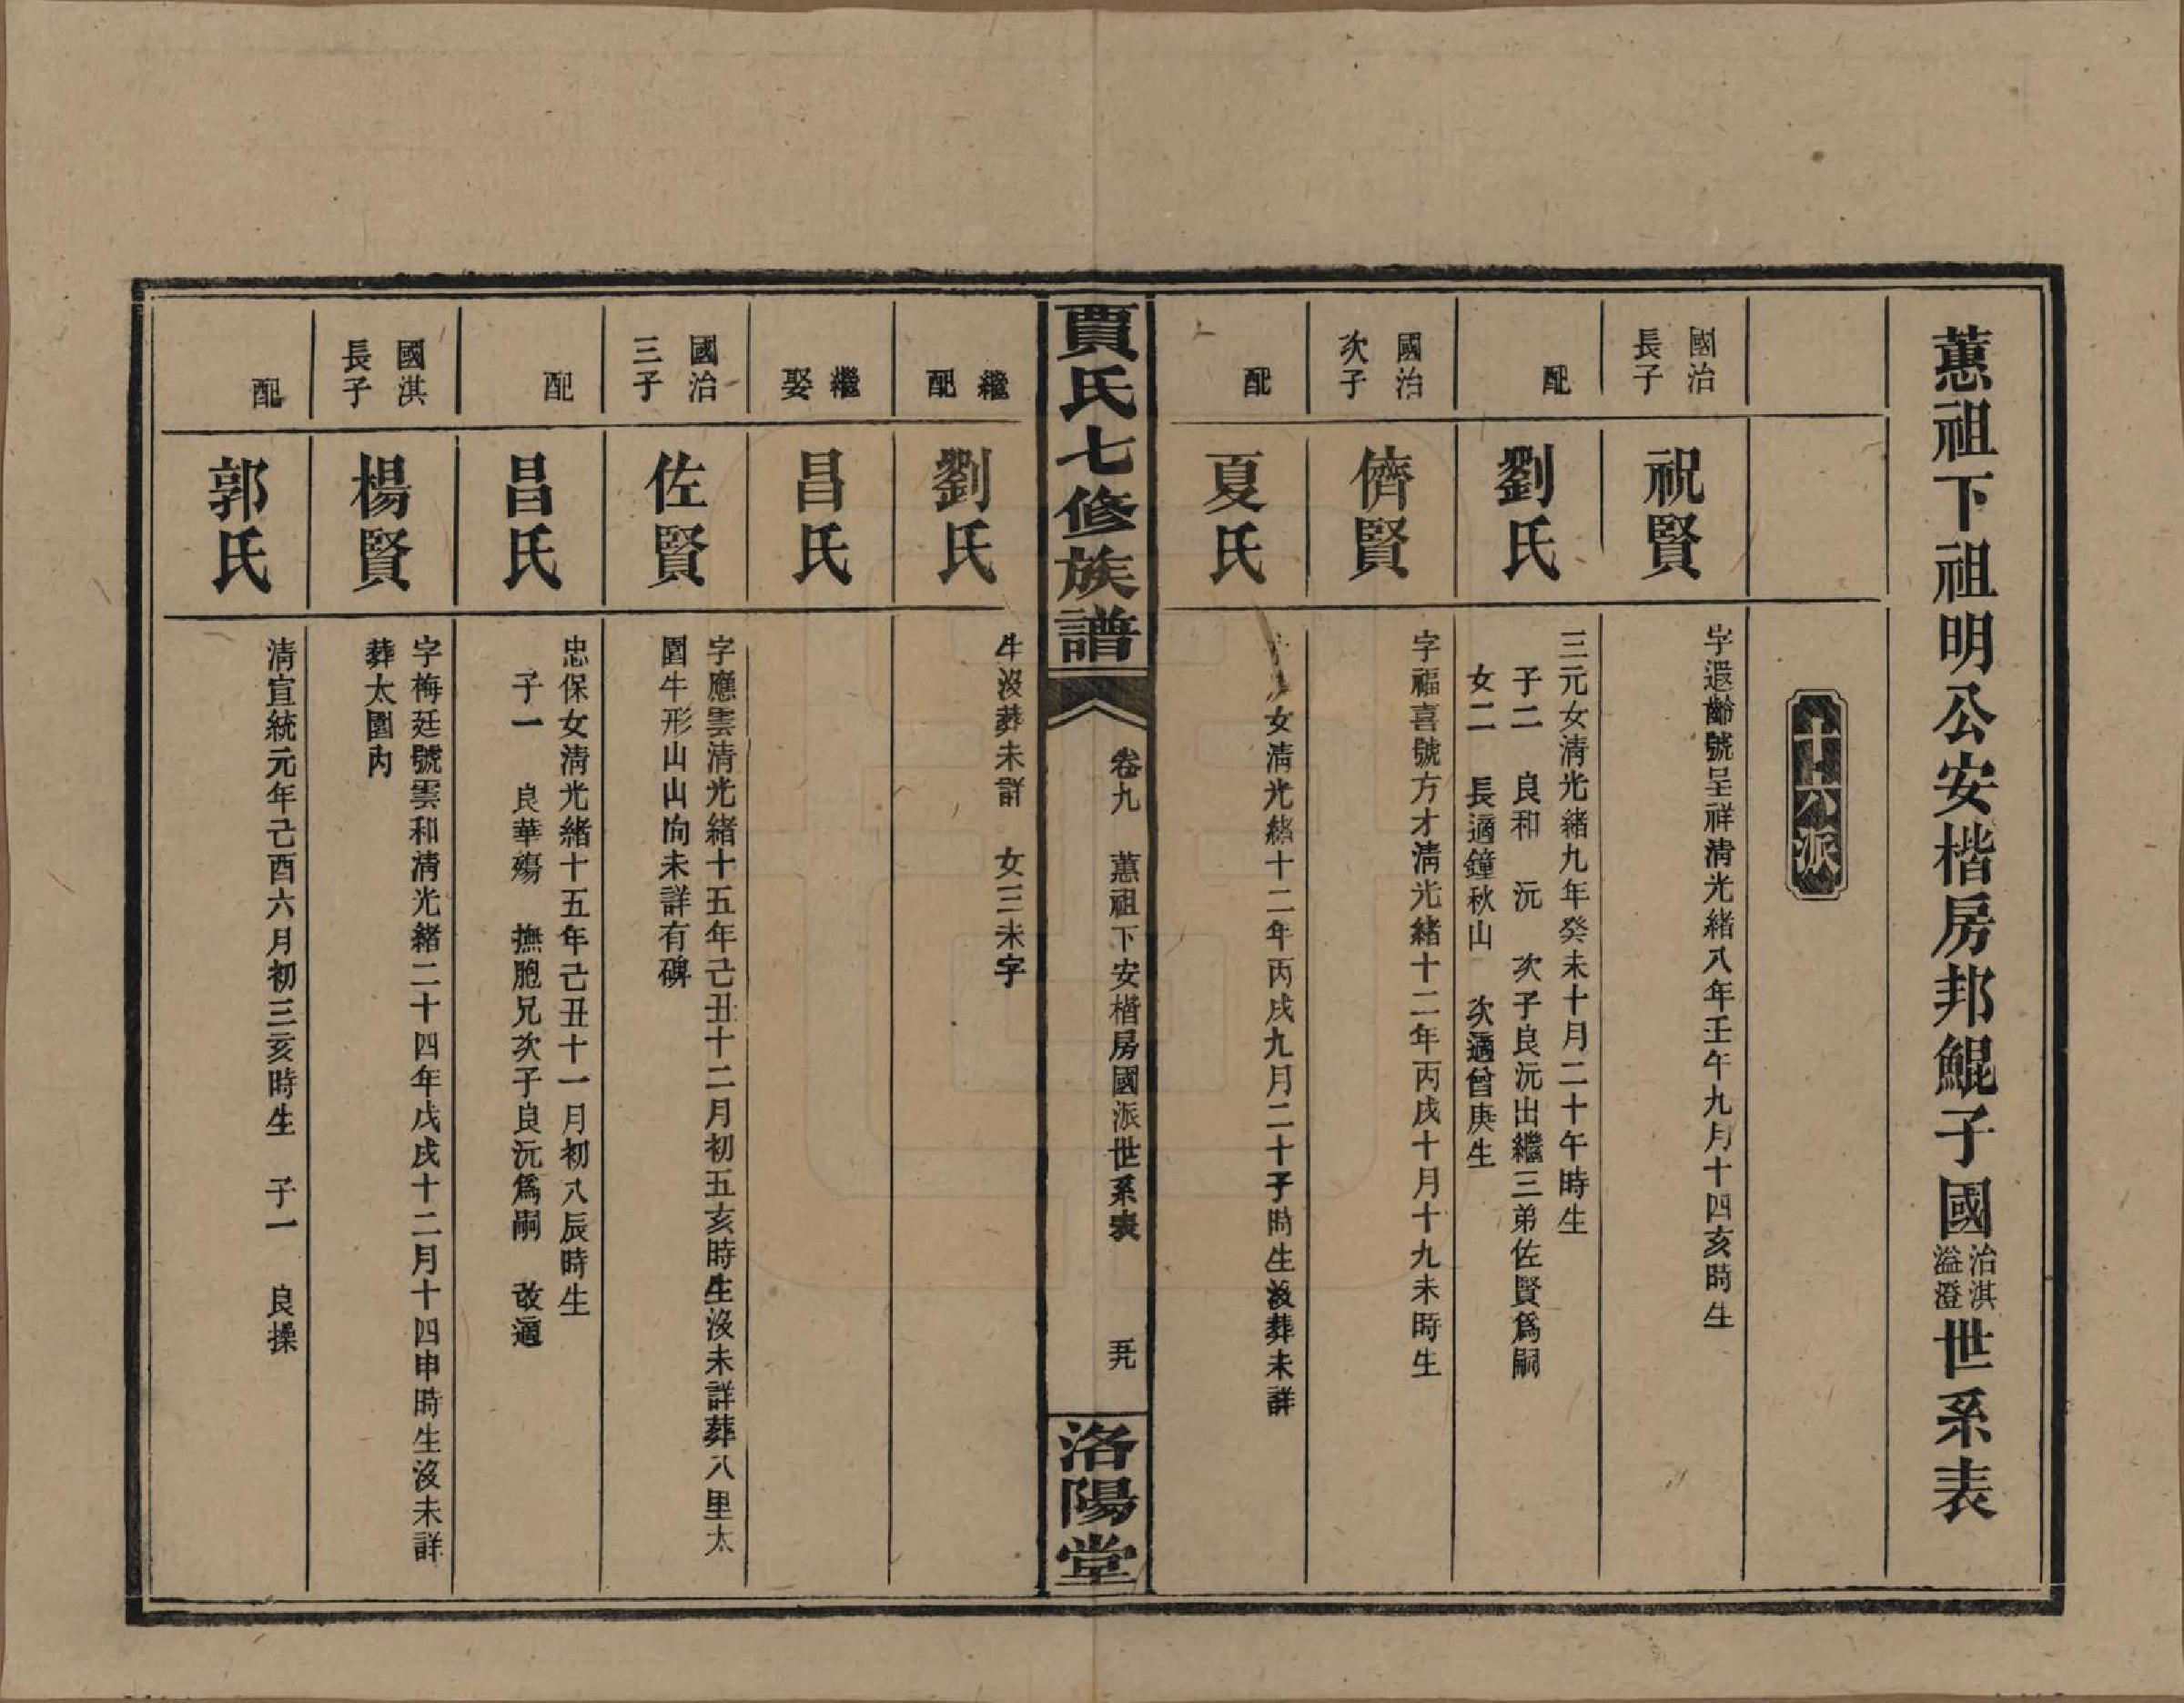 蕙祖下祖明公安楷房邦鯤子國治淇溢澄世系表
十六派
國治
長子
祝賢
字遐齡號呈祥淸光緒八年壬午九月十四亥時生
配
劉氏
三元女淸光緒九年癸未十月二十午時生
子二 良和 沅 次子良沅出繼三弟佐賢爲嗣
女二 長適鐘秋山 次適曾庚生
國治
次子
儕賢
字福喜號方才淸光緒十二年丙戌十月十九未時生
配
夏氏
女淸光緒十二年丙戌九月二十子時生沒葬未詳
賈氏七修族譜
卷九 蕙祖下安楷房國派世系表
五九
洛陽堂
繼
配
劉氏
生沒葬未詳 女三未字
繼
娶
昌氏
國治
三子
佐賢
字應雲淸光緒十五年己丑十二月初五亥時生沒未詳葬八里太
圍牛形山山向未詳有碑
配
昌氏
忠保女淸光緒十五年己丑十一月初八辰時生
子一 良華殤 撫胞兄次子良沅爲嗣 改適
國淇
長子
楊賢
字梅廷號雲和淸光緒二十四年戊戌十二月十四申時生沒未詳
葬太圍內
配
郭氏
淸宣統元年己酉六月初三亥時生 子一 良操